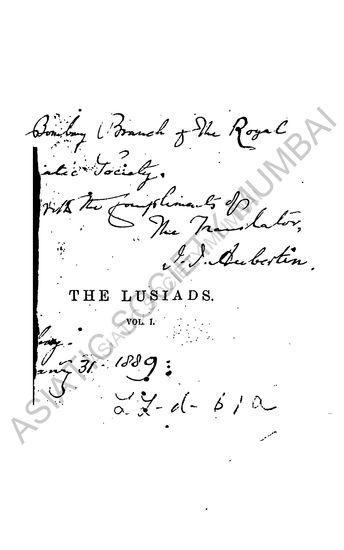 Bombay Branch of the Royal
iatic Society.
with the compliments of
The Translator,
J. J. Aubertin.
THE LUSIADS.
VOL. I.
bay.
ary 31. 1889:
ASIATIC SOCIETY MUMBAI